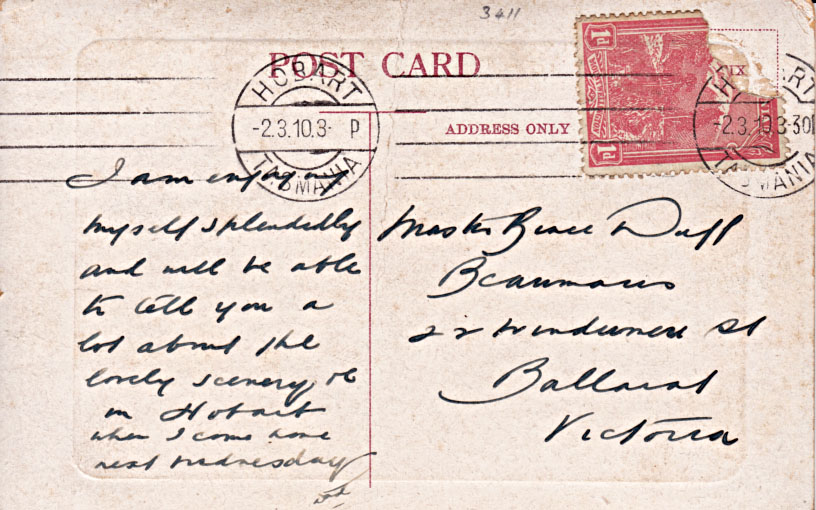 3411
POST CARD
ADDRESS ONLY
1d 1d
IX
1d
HOBART
-2.3.10.3- P
TASMANIA
HOBART
-2.3.10.3-30
TASMANIA
I am enjoying
myself splendedly
and will be able
to tell you a
lot about the
lovely scenery
in Hobart
when I come home
next Wednesday
Master Bruce Duff
Beaumaris
22 Windermere St
Ballarat
Victoria